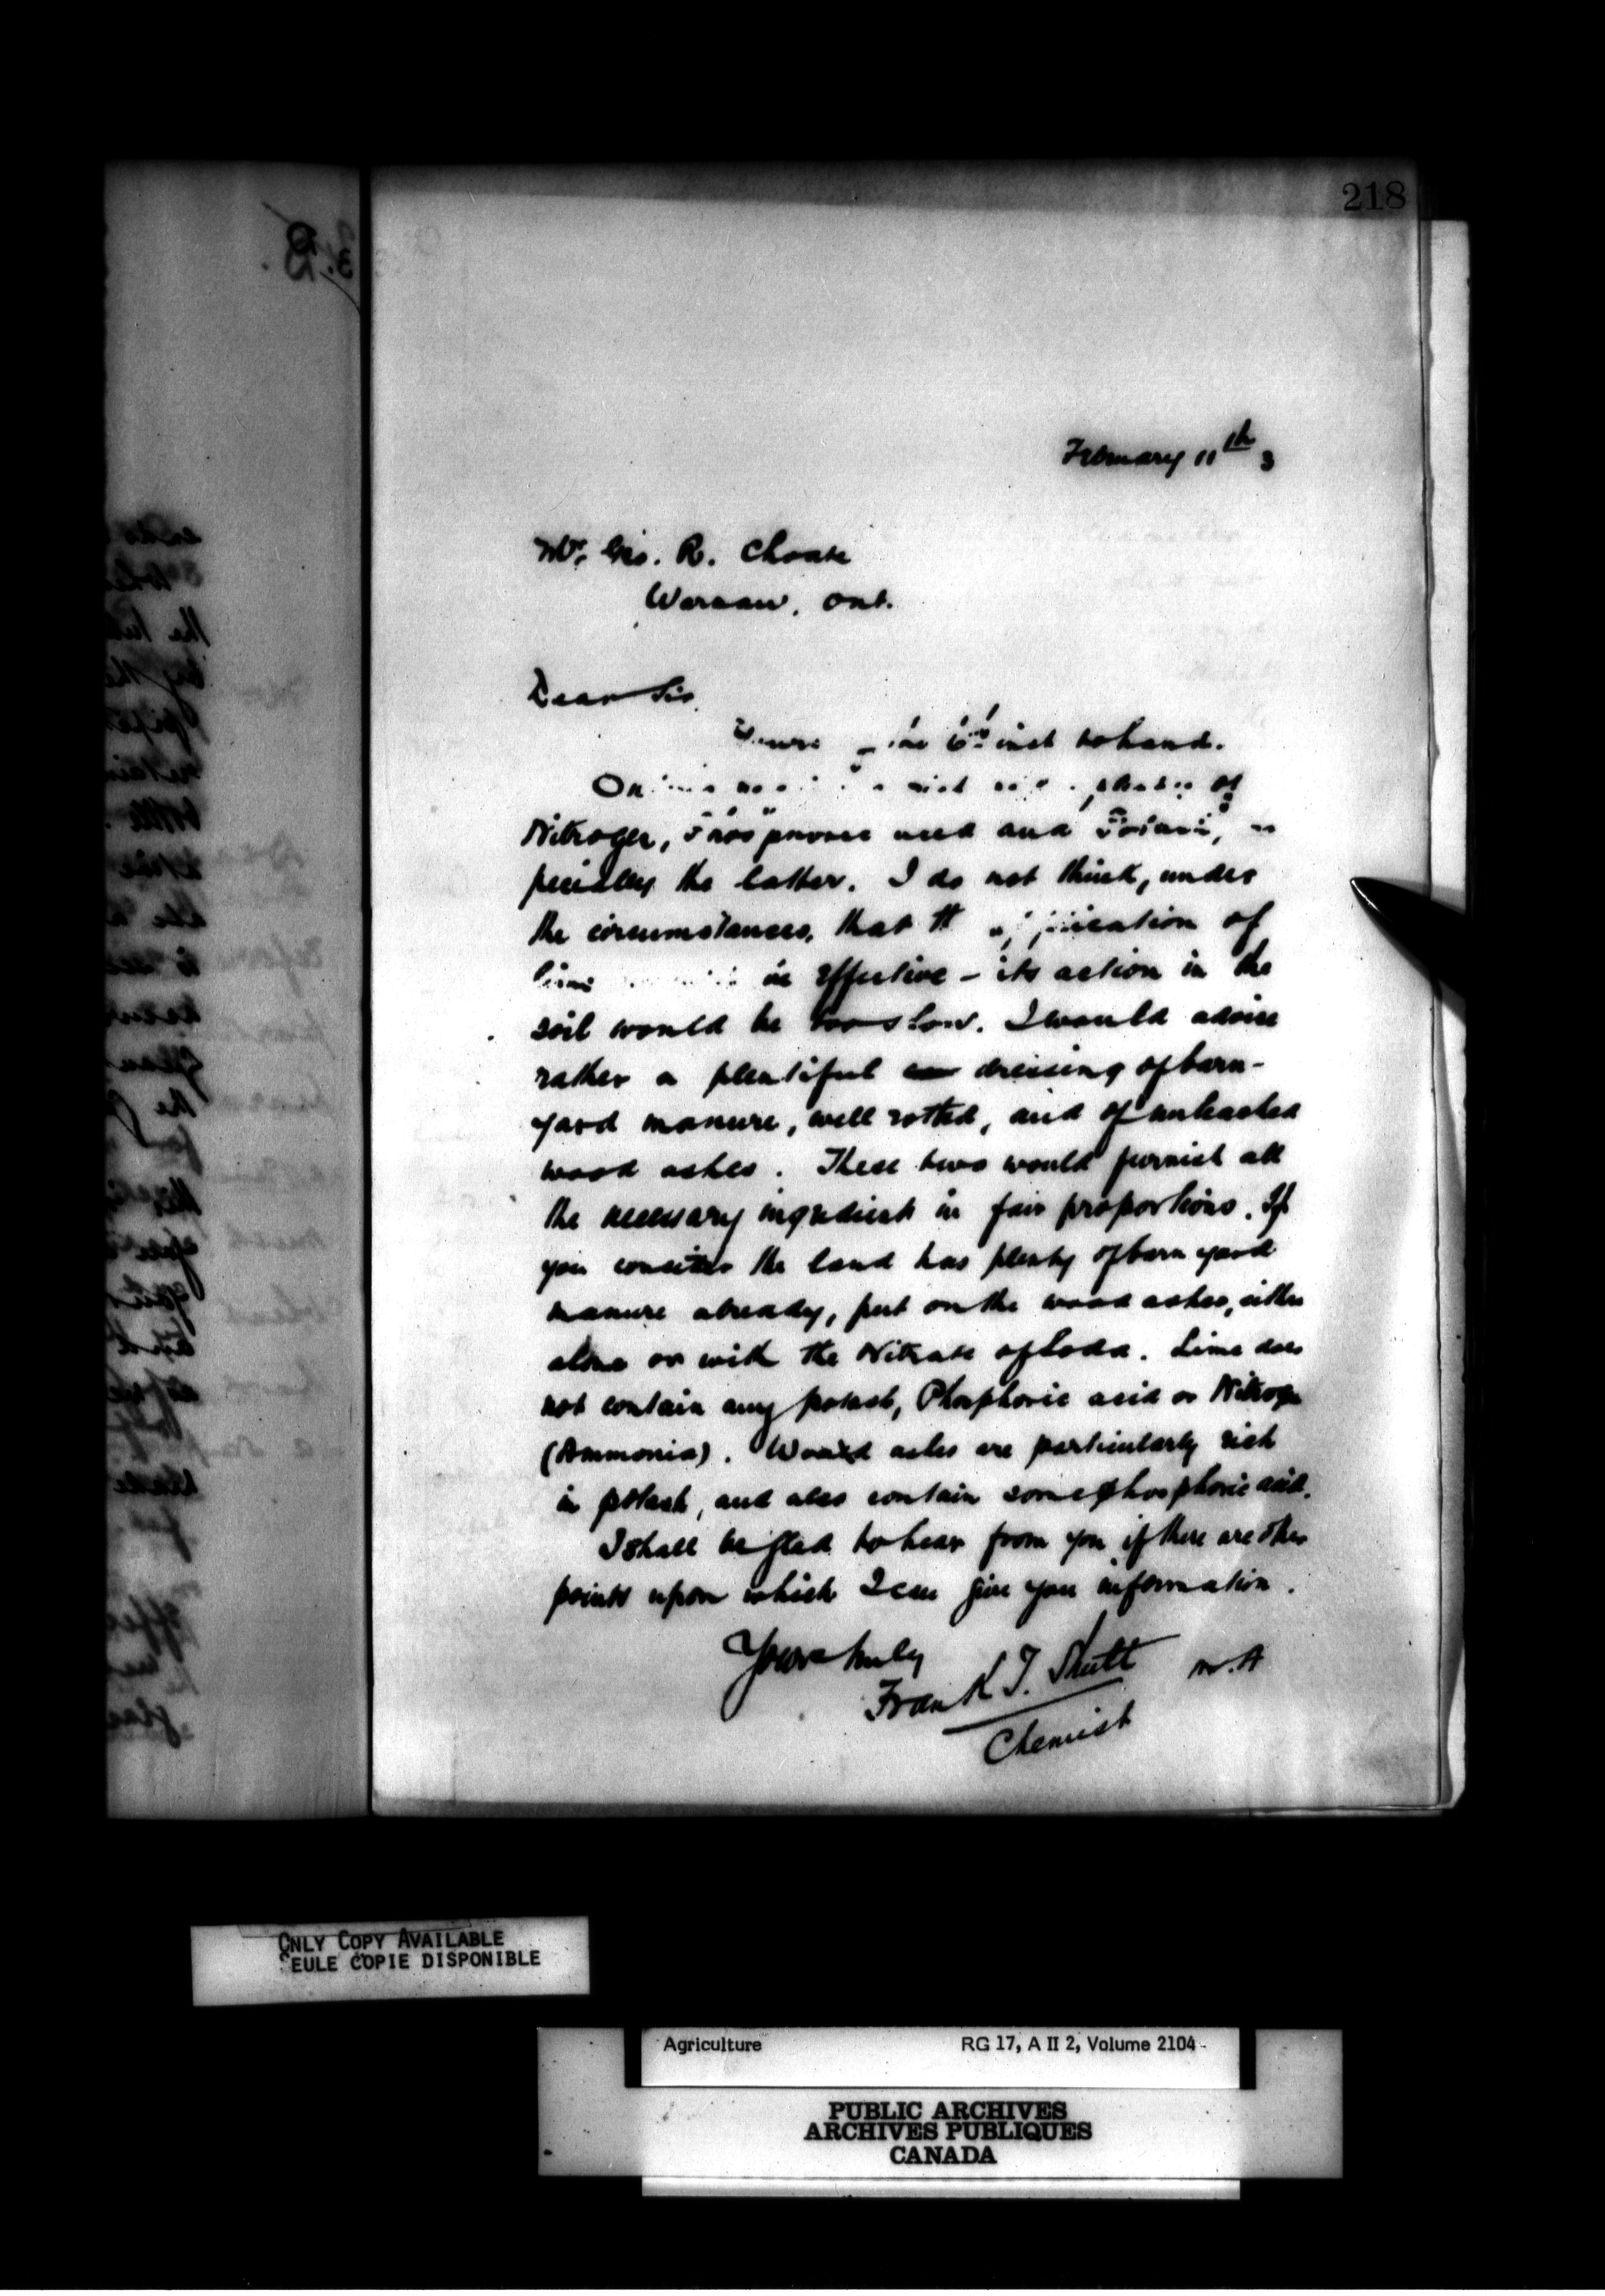 218
February 11th 3
Mr. Geo. R. Choate
Warsaw, Ont.
Dear Sir
Yours the 6th inst to hand.
On of
Nitrogen, Phosphoric acid and Potash, es
pecially the latter. I do not think, under
the circumstances, that th application of
lime be effective - its action in the
soil would be too slow. I would advise
rather a plentiful dressing of barn-
yard manure, well rotted, and of unleached
wood ashes. These two would furnish all
the necessary ingredients in fair proportions. If
you consider the land has plenty of barn yard
manure already, put on the wood ashes, either
alone or with the Nitrate of Soda. Lime does
not contain any potash, Phosphoric acid or Nitrogen
(Ammonia). Wood ashes are particularly rich
in potash, and also contain some phosphoric acid.
I shall be glad to hear from you if there are other
points upon which I can give you information.
Yours truly
Frank T. Shutt M.A
Chemist
ONLY COPY AVAILABLE
SEULE COPIE DISPONIBLE
Agriculture RG 17, A II 2, Volume 2104
PUBLIC ARCHIVES
ARCHIVES PUBLIQUES
CANADA